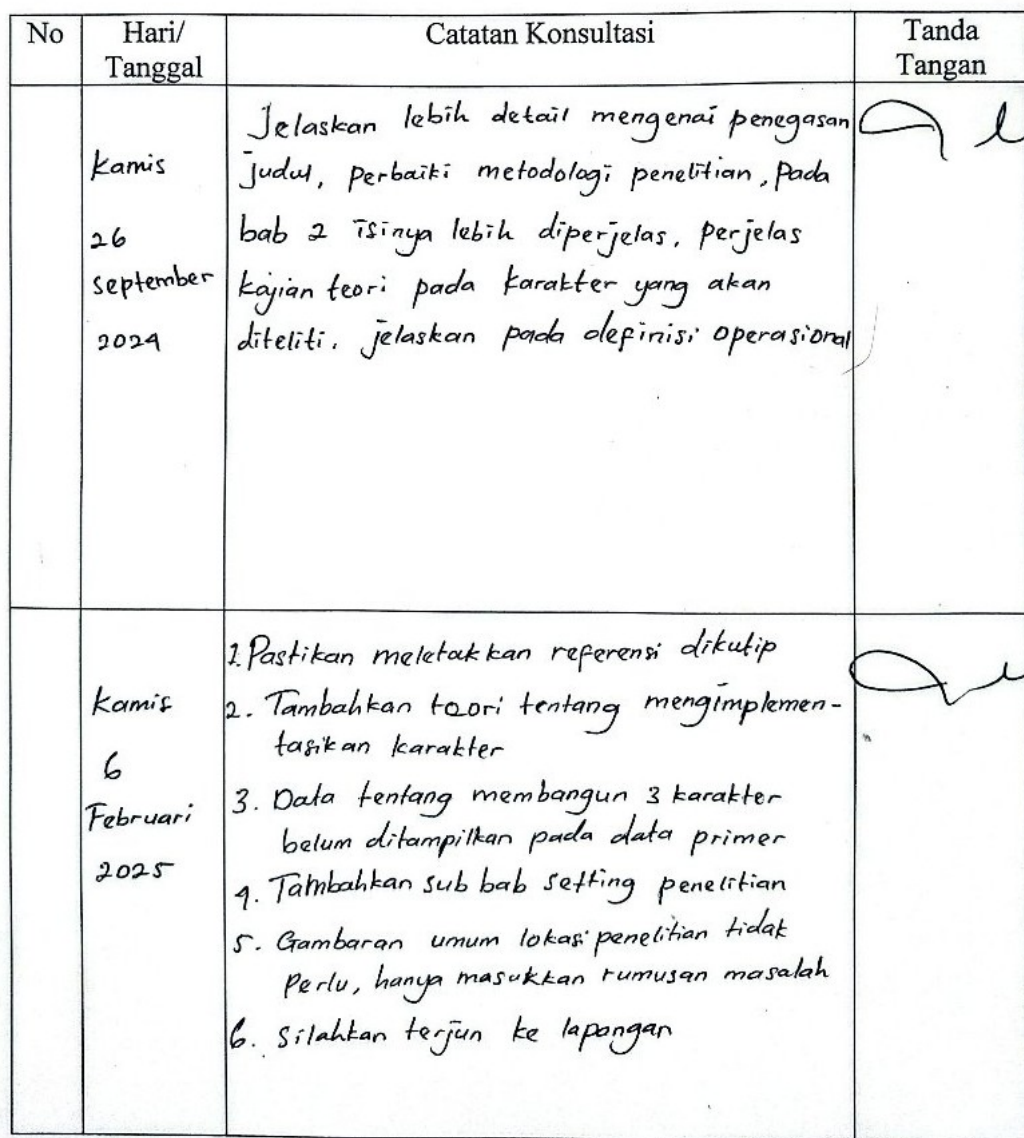 No
Hari/
Tanggal
Catatan Konsultasi
Tanda
Tangan
Kamis
26
September
2024
Jelaskan lebih detail mengenai penegasan
judul, perbaiki metodologi penelitian, Pada
bab 2 isinya lebih diperjelas, perjelas
kajian teori pada karakter yang akan
diteliti. jelaskan pada definisi operasional
Kamis
6
Februari
2025
1. Pastikan meletakkan referensi dikutip
2. Tambahkan teori tentang mengimplemen-
tasikan karakter
3. Data tentang membangun 3 karakter
belum ditampilkan pada data primer
4. Tambahkan sub bab setting penelitian
5. Gambaran umum lokasi penelitian tidak
Perlu, hanya masukkan rumusan masalah
6. Silahkan terjun ke lapangan